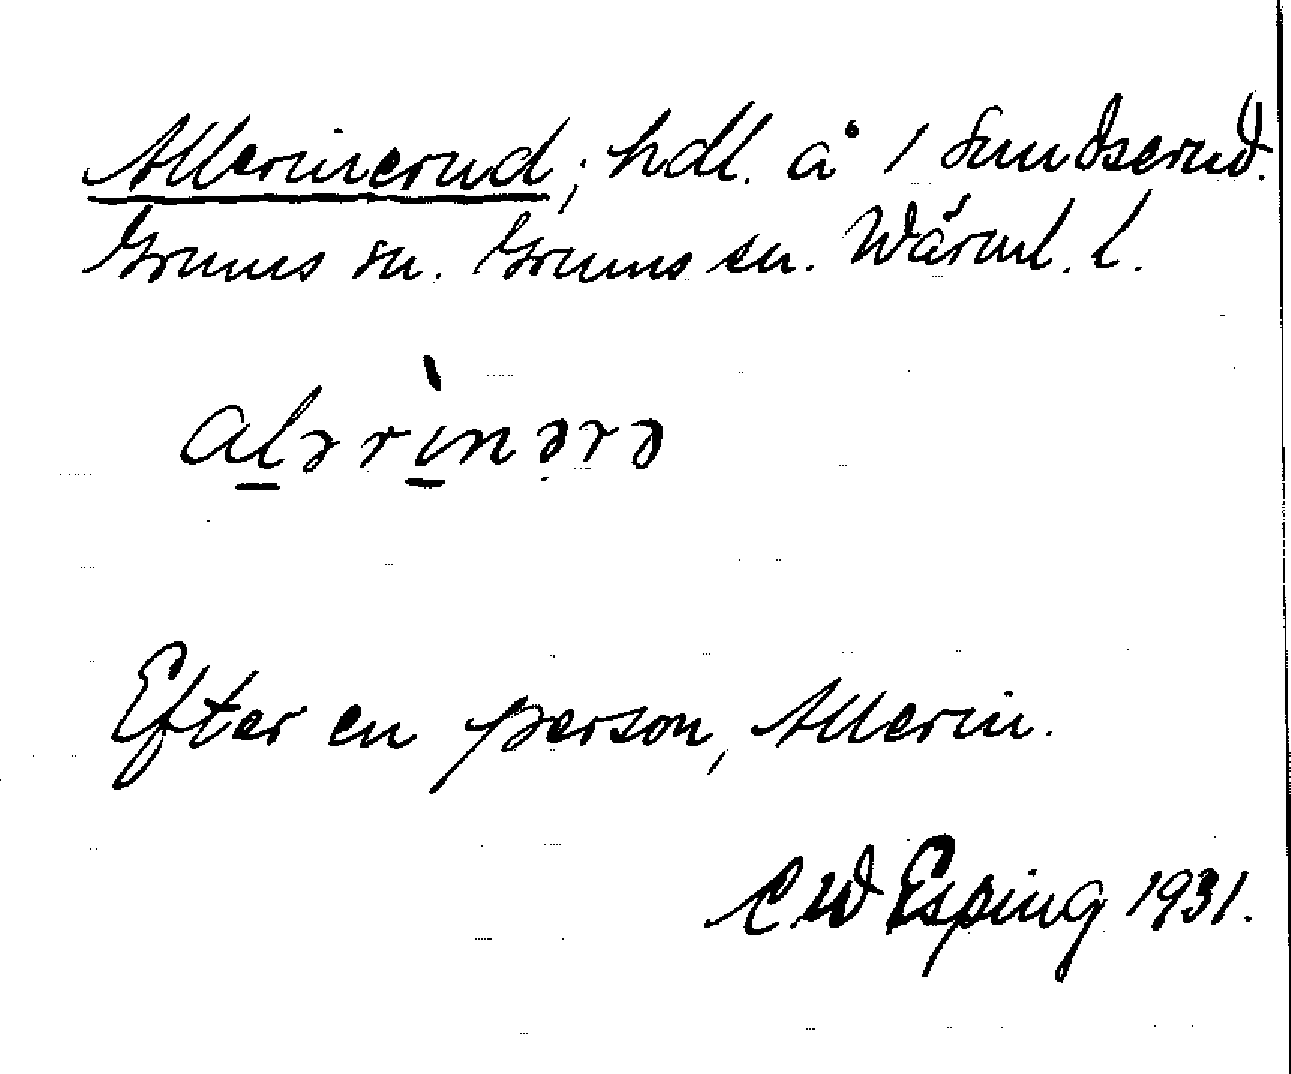 Allerinerud; hdl. å 1 Sundserud.
Grums sn. Grums sn. Wärml. l.
alərìnərə
Efter en person, Allerin.
C.W Esping 1931.